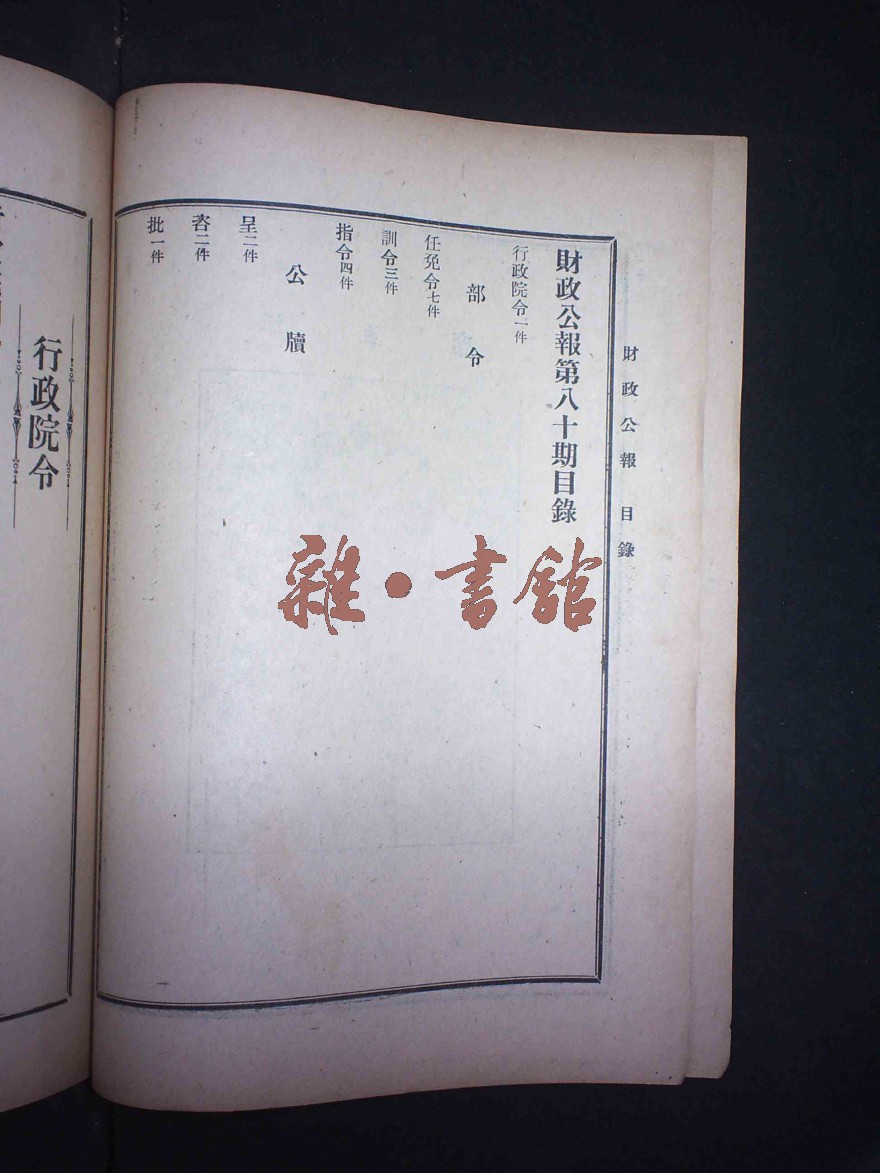 財政公報 目錄
財政公報第八十期目錄
行政院令一件
部令
任免令七件
訓令三件
指令四件
公牘
呈二件
咨二件
批一件
一
行政院令
雜·書館